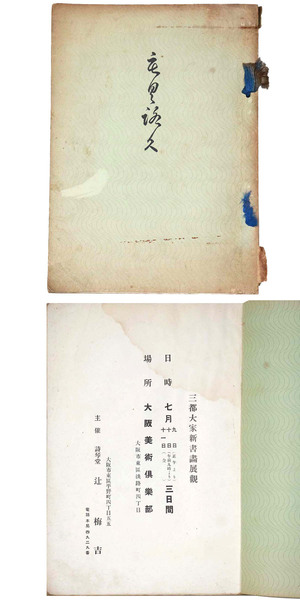 もくろく
三都大家新書畫展觀
日時 七月 九日 十日 十一日 三日間
場所 大阪美術俱樂部
大阪市東區淡路町四丁目
主催 詩琴堂 辻梅吉
大阪市東區平野町四丁目